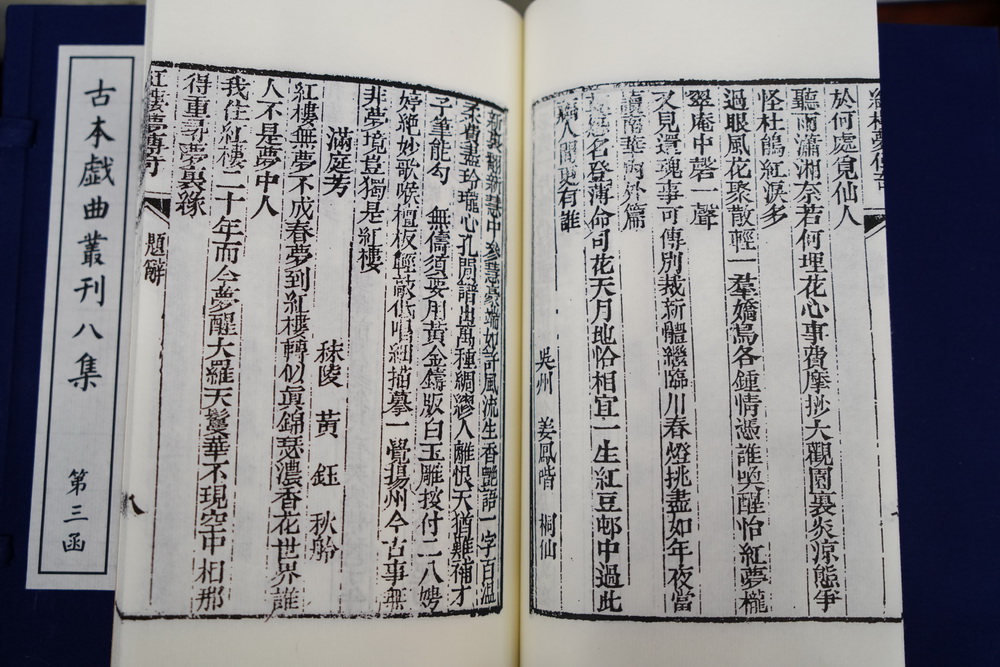 古本戲曲叢刊八集
第三函
於何處覓仙人
聽雨瀟湘奈若何埋花心事費摩抄大觀園裏炎涼態爭
怪杜鵑紅淚多
過眼風花聚散輕一羣嬌鳥各鍾情憑誰喚醒怡紅夢櫳
翠庵中磬一聲
又見還魂事可傳別裁新體繼臨川春燈挑盡如年夜當
讀南華內外篇
名登薄命司花天月地恰相宜一生紅豆邨中過此
人間更有誰
吳州 姜鳳喈 桐仙
滿庭芳
秣陵 黃鈺 秋舲
紅樓無夢不成春夢到紅樓轉似眞錦瑟濃香花世界誰
人不是夢中人
我住紅樓二十年而今夢醒大羅天鬘華不現空中相那
得重尋夢裏緣
風流生香艷語一字百溫
柔費盡玲瓏心孔閒譜出萬種綢繆人離恨天猶難補才
子筆能勾 無儔須要用黃金鑄版白玉雕按付二八娉
婷絕妙歌喉檀板輕敲低唱細描摹一覺揚州今古事無
非夢境豈獨是紅樓
紅樓夢傳奇
題辭
八